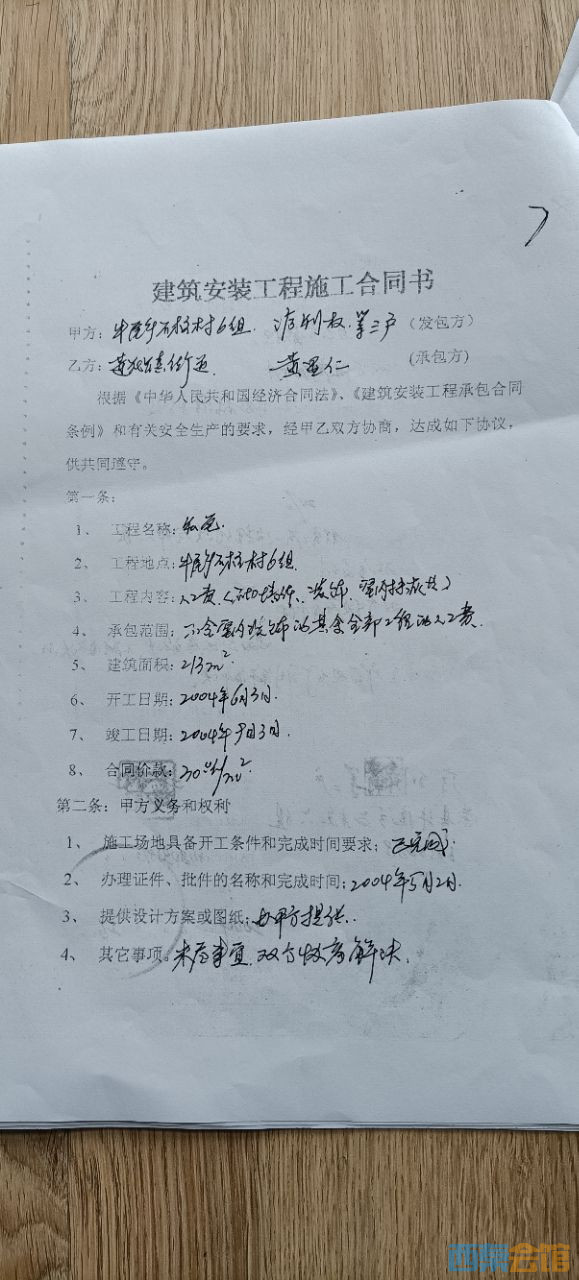 建筑安装工程施工合同书
甲方：牛 乡石 村6组. 第三户（发包方）
乙方： 黄 仁 (承包方)
根据《中华人民共和国经济合同法》、《建筑安装工程承包合同
条例》和有关安全生产的要求，经甲乙双方协商，达成如下协议，
供共同遵守。
第一条：
1、 工程名称：
2、 工程地点：牛 乡石 村6组.
3、 工程内容：人工费 装饰、
4、 承包范围：不含室内装饰的其余全部工程的人工费.
5、 建筑面积：213m².
6、 开工日期：2004年6月3日.
7、 竣工日期：2004年 月3日.
8、 合同价款： /m².
第二条：甲方义务和权利
1、 施工场地具备开工条件和完成时间要求：已完成.
2、 办理证件、批件的名称和完成时间：2004年5月2日.
3、 提供设计方案或图纸：由甲方提供.
4、 其它事项。未尽事宜.双方 解决.
西京会馆